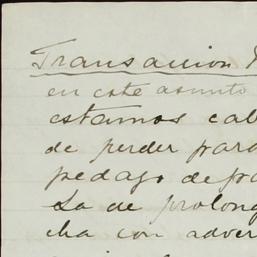 Transaccion
en este asunto
estamos cal
de perder para
pedazo de pa
La de prolong
cha con adver